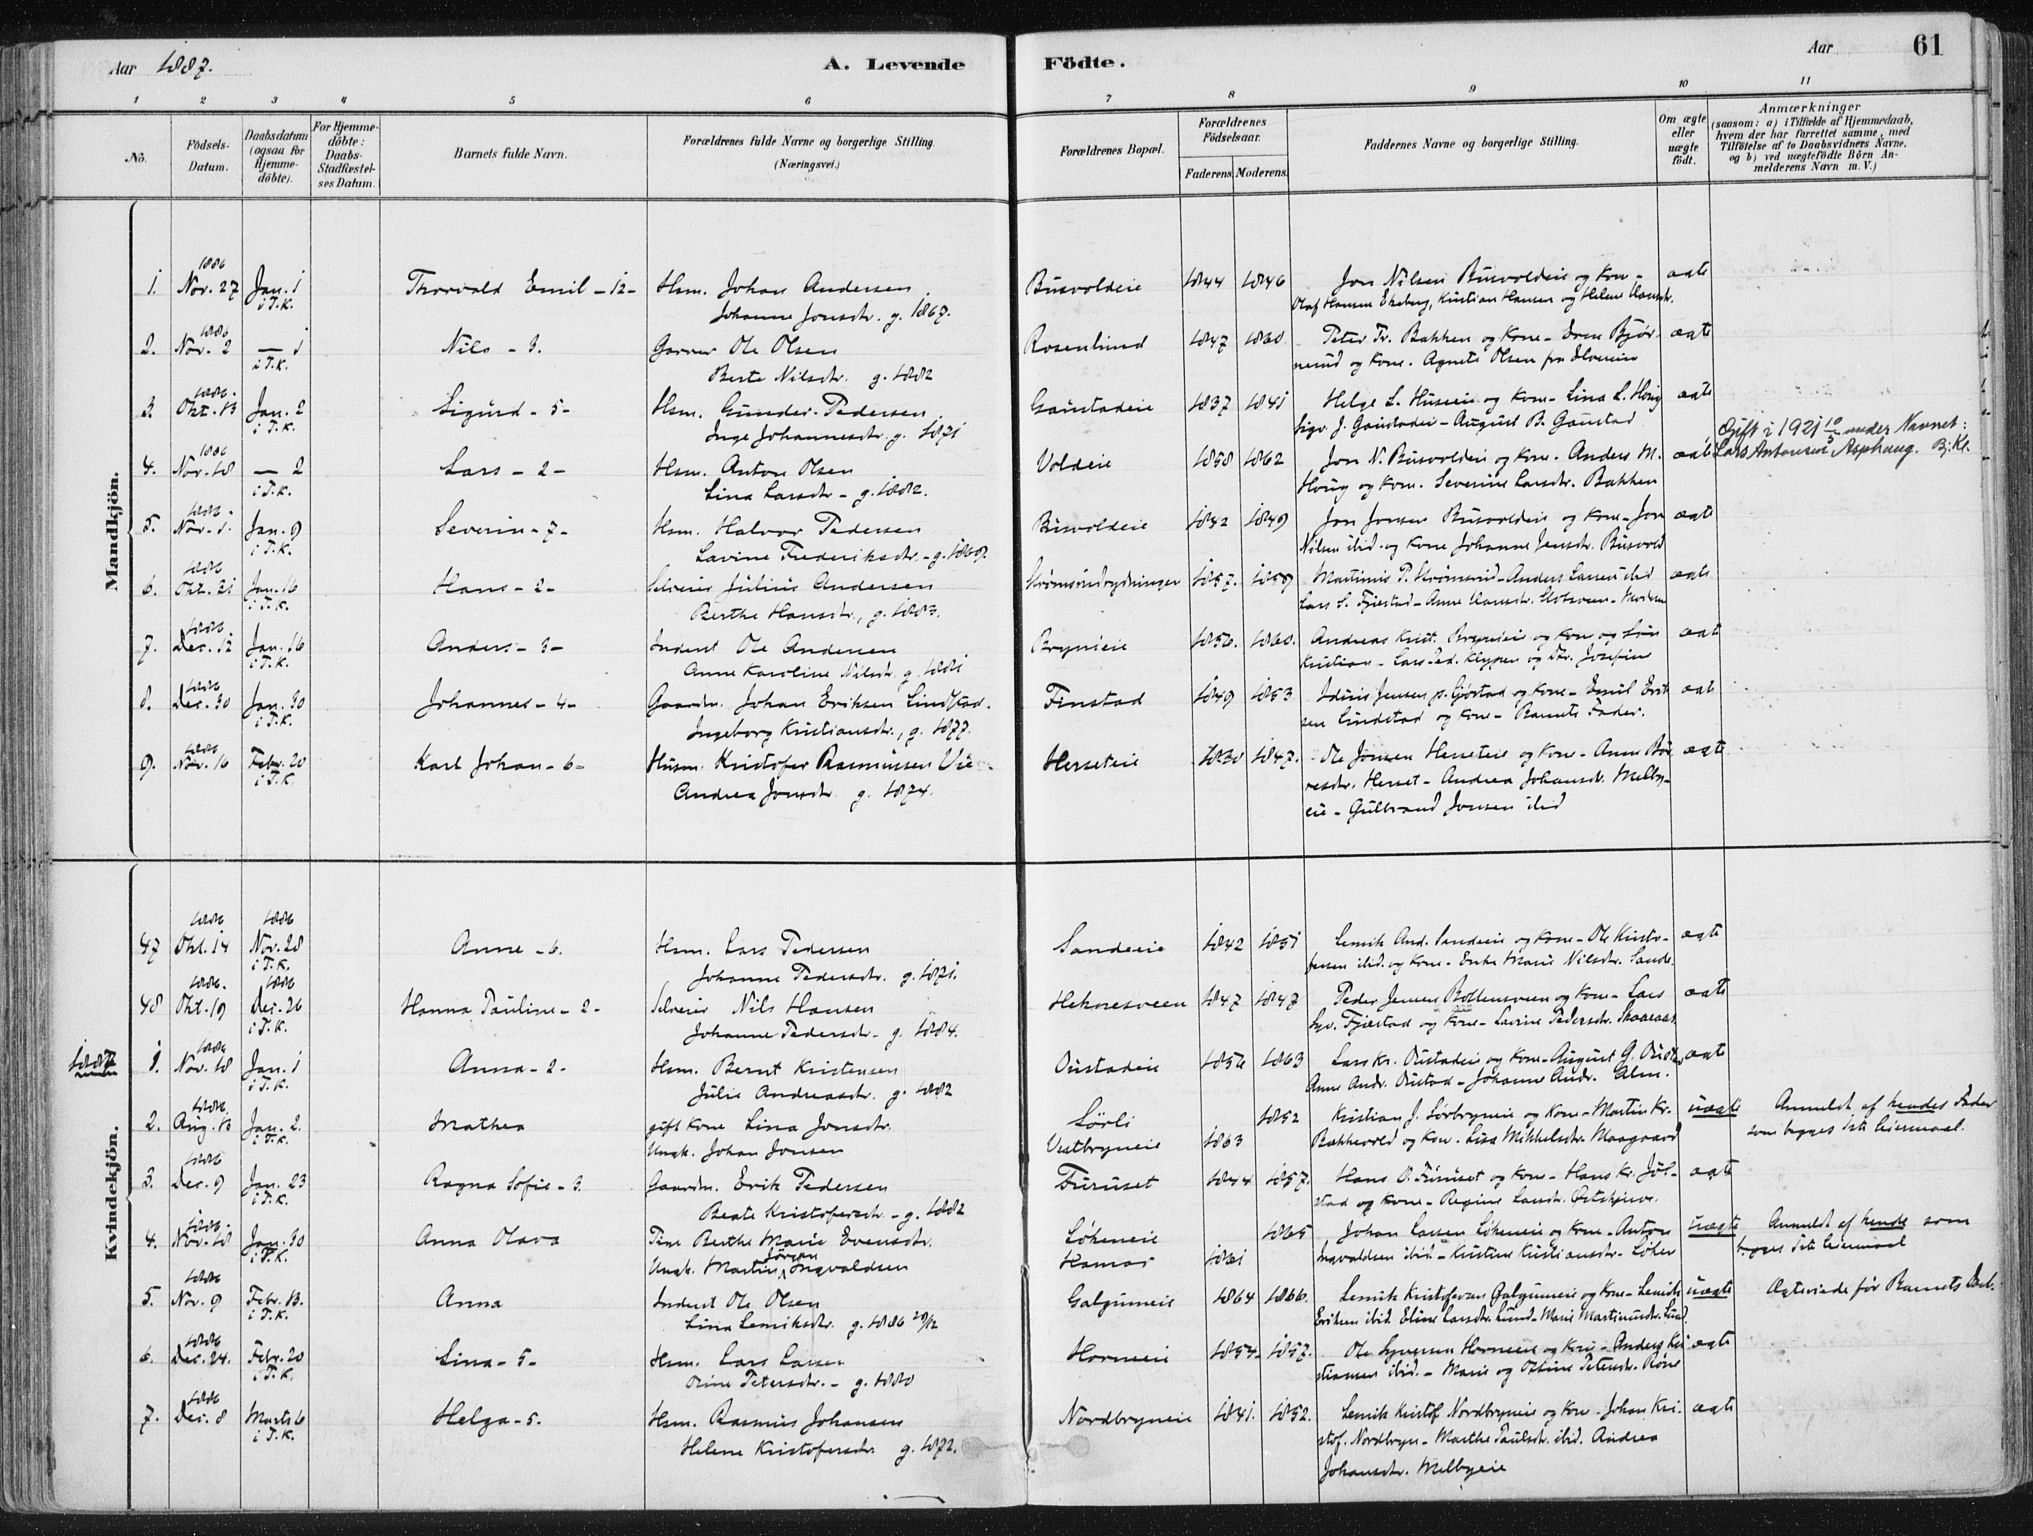 Aar 1887.
A. Levende
Födte.
Aar
61
1 2 3 4 5 6 7 8 9 10 11
No.
Födsels-Datum.
Daabsdatum (ogsaa for Hjemme-döbte).
For Hjemme-döbte: Daabs-Stadfæstel-ses Datum.
Barnets fulde Navn.
Forældrenes fulde Navne og borgerlige Stilling. (Næringsvei.)
Forældrenes Bopæl.
Forældrenes Födselsaar.
Faderens. Moderens.
Faddernes Navne og borgerlige Stilling.
Om ægte eller uægte födt.
Anmærkninger
(saasom: a) i Tilfælde af Hjemmedaab,
hvem der har forrettet samme, med
Tilföielse af to Daabsvidners Navne,
og b) ved uægtefödte Börn An-
melderens Navn m.V.)
Mandkjön.
1886
1. Nov. 27 Jan. 1 Thorvald Emil - 12 - Hsm. Johan Andersen Busvoldeie 1844 1846 Jon Nilsen Busvoldeie og Kone - ægte
i T.K. Johanne Jonsdr. g. 1867. Olaf Hansen Ekeberg, Kristian Hansen og Helene Hansdr.
1886
2. Nov. 2 — 1 Nils - 3. Garver Ole Olsen Rosenlund 1847 1860 Peter Fr. Bakken og Kone - Even Bjør- ægte
i T.K. Berte Nilsdr. g. 1882 nerud og Kone. Agnete Olsen fra
1886.
3. Okt. 13 Jan. 2 Sigurd - 5 - Hsm. Gunder Pedersen Gaustadeie 1837 1841 Helge L. Huseeie og Kone - Lina L. Houg ægte
i T.K. Inge Johannesdr. g. 1871 Sigv. J. Gaustadeie - August B. Gaustad
Gift i 1921 10/5 under Navnet:
1886
4. Nov. 18 — 2 Lars - 2 - Hsm. Anton Olsen Voldeie 1858 1862 Jon N. Busvoldeie og Kone. Anders M. ægte Lars Antonsen Asphaug. Bj. Kl.
i T.K. Lina Larsdr. - g. 1882. Houg og Kone. Severine Larsdr. Bakken
1886.
5. Nov. 1. Jan. 9 Severin - 7 - Hsm. Halvor Pedersen Busvoldeie 1842 1849 Jon Jonsen Busvoldeie og Kone - Jon ægte
i T.K. Lavine Frederiksdr. - g. 1869. Nilsen ibid. og Kone Johanne Jensdr. Busvold
1886
6. Okt. 21 Jan. 16 Hans - 2 - Selveier Julius Andersen Strømsrudrydninger 1857. 1859 Martinus P. Strømsrud - Anders Larsen ibid ægte
i T.K. Berthe Hansdr., g. 1883. Lars L. Fjæstad - Anne Hansdr. - Moderen
1886.
7. Dec. 12 Jan. 16 Anders - 3 - Inderst Ole Andersen Brynieie 1856. 1860. Andreas Krist. Brynieie og Kone og Søn ægte
i T.K. Anne Karoline Nilsdr. g. 1881 Kristian - Lars Ped. Klypen og Dtr. Josefine
1886
8. Dec. 30 Jan. 30 Johannes - 4 - Gaardm. Johan Eriksen Lindstad. Finstad 1849 1853 Jensen p. Gjøstad og Kone - Emil Erik- ægt
i T.K. Ingeborg Kristiansdr., g. 1877. sen Lindstad og Kone - Barnets Fader.
1886
9. Nov. 16 Febr. 20 Karl Johan - 6 - Husm. Kristofer Rasmussen Vie Herseteie 1830 1847. Ole Jonsen Herseteie og Kone - Anne Bør- ægte
i T.K. Andrea Jonsdr. g. 1874. resdr. Herset - Andrea Johansdr. Melby-
eie - Gulbrand Jonsen ibid
Kvindekjön.
1886 1886
47 Okt. 14 Nov. 28 Anne - 6. Hsm. Lars Pedersen Sandeeie 1842 1851 Lemik And. Sandeeie og Kone - Ole Kristo- ægte
i T.K. Johanne Pedersdr. g. 1871. fersen ibid. og Kone - Marie Nilsdr. Sande.
1886. 1886
48 Okt. 19 Dec. 26 Hanna Pauline - 2 - Selveier Nils Hansen Heknesveen 1847 1847 Peder Jensen Bottensveen og Kone - Lars ægte
i T.K. Johanne Pedersdr. - g. 1884. Syv. Fjæstad og Kone - Lavine Pedersdr. Skaaraas
1887
1886
1. Nov. 18 Jan. 1 Anna - 2 - Hsm. Bernt Kristensen Oustadeie 1856 1863 Lars Kr. Oustadeie og Kone - August G. Oustad ægte
i T.K. Julie Andreasdr. g. 1882 Anne Andr. Oustad - Johanne Andr. Alm.
1886.
2. Aug. 13 Jan. 2. Mathea gift Kone Lina Jonsdr. Sörli 1852 Kristian J. Sørbrynieie og Kone - Martin Kr. uægte Anmeldt af hendes Fader
i T.K. Ungk. Johan Jonsen Vestbrynieie 1863 Bakkevold og Kone. Lisa Mikkelsdr. Moagaard som begges 1ste Leiermaal.
1886
3. Dec. 9 Jan. 23 Ragna Sofie - 3. Gaardm. Erik Pedersen Furuset 1844 1857. Hans O. Furuset og Kone - Hans Kr. Jøl- ægte
i T.K. Beate Kristofersdr. - g. 1882 stad og Kone - Regine Larsdr.
1886.
4. Nov. 18 Jan. 30 Anna Olava Pige Berthe Marie Evensdr. Løkeneie 1865 Johan Larsen Løkeneie og Kone - Anton uægte Anmeldt af hende som
i T.K. Ungk. Martin Jörgen Ingvaldsen Hamar 1861 Ingvaldsen ibid. - Kristine Kristiansdr. Løken begges 1ste Leiermaal
1886
5. Nov. 9 Febr. 13. Anna Inderst Ole Olsen Galguneie 1864 1866. Lemik Kristofersen Galguneie og Kone - Lemik uægte Ægteviede før Barnets Daab.
i T.K. Lina Lemiksdr. g. 1886 29/12 Eriksen ibid. Eline Larsdr. Lund - Marie Martinusdr. Lund
1886
6. Dec. 24. Febr. 20 Lina - 5 - Hsm. Lars Larsen Horneie 1854 1857. Ole Syversen Horneie og Kone - Anders Kri- ægte
i T.K. Oline Petersdr. - g. 1880 stiansen ibid. - Marie og Othine Petersdr. Röne
1886
7. Dec. 8 Marts 6 Helga - 5. Hsm. Rasmus Johansen Nordbrynieie 1841. 1852. Lemik Kristof. Nordbrynieie og Kone - Johan Kri- ægte
i T.K. Helene Kristofersdr. g. 1872. stof. Nordbryn - Marthe Paulsdr. ibid. Andrea
Johansdr. Melbyeie